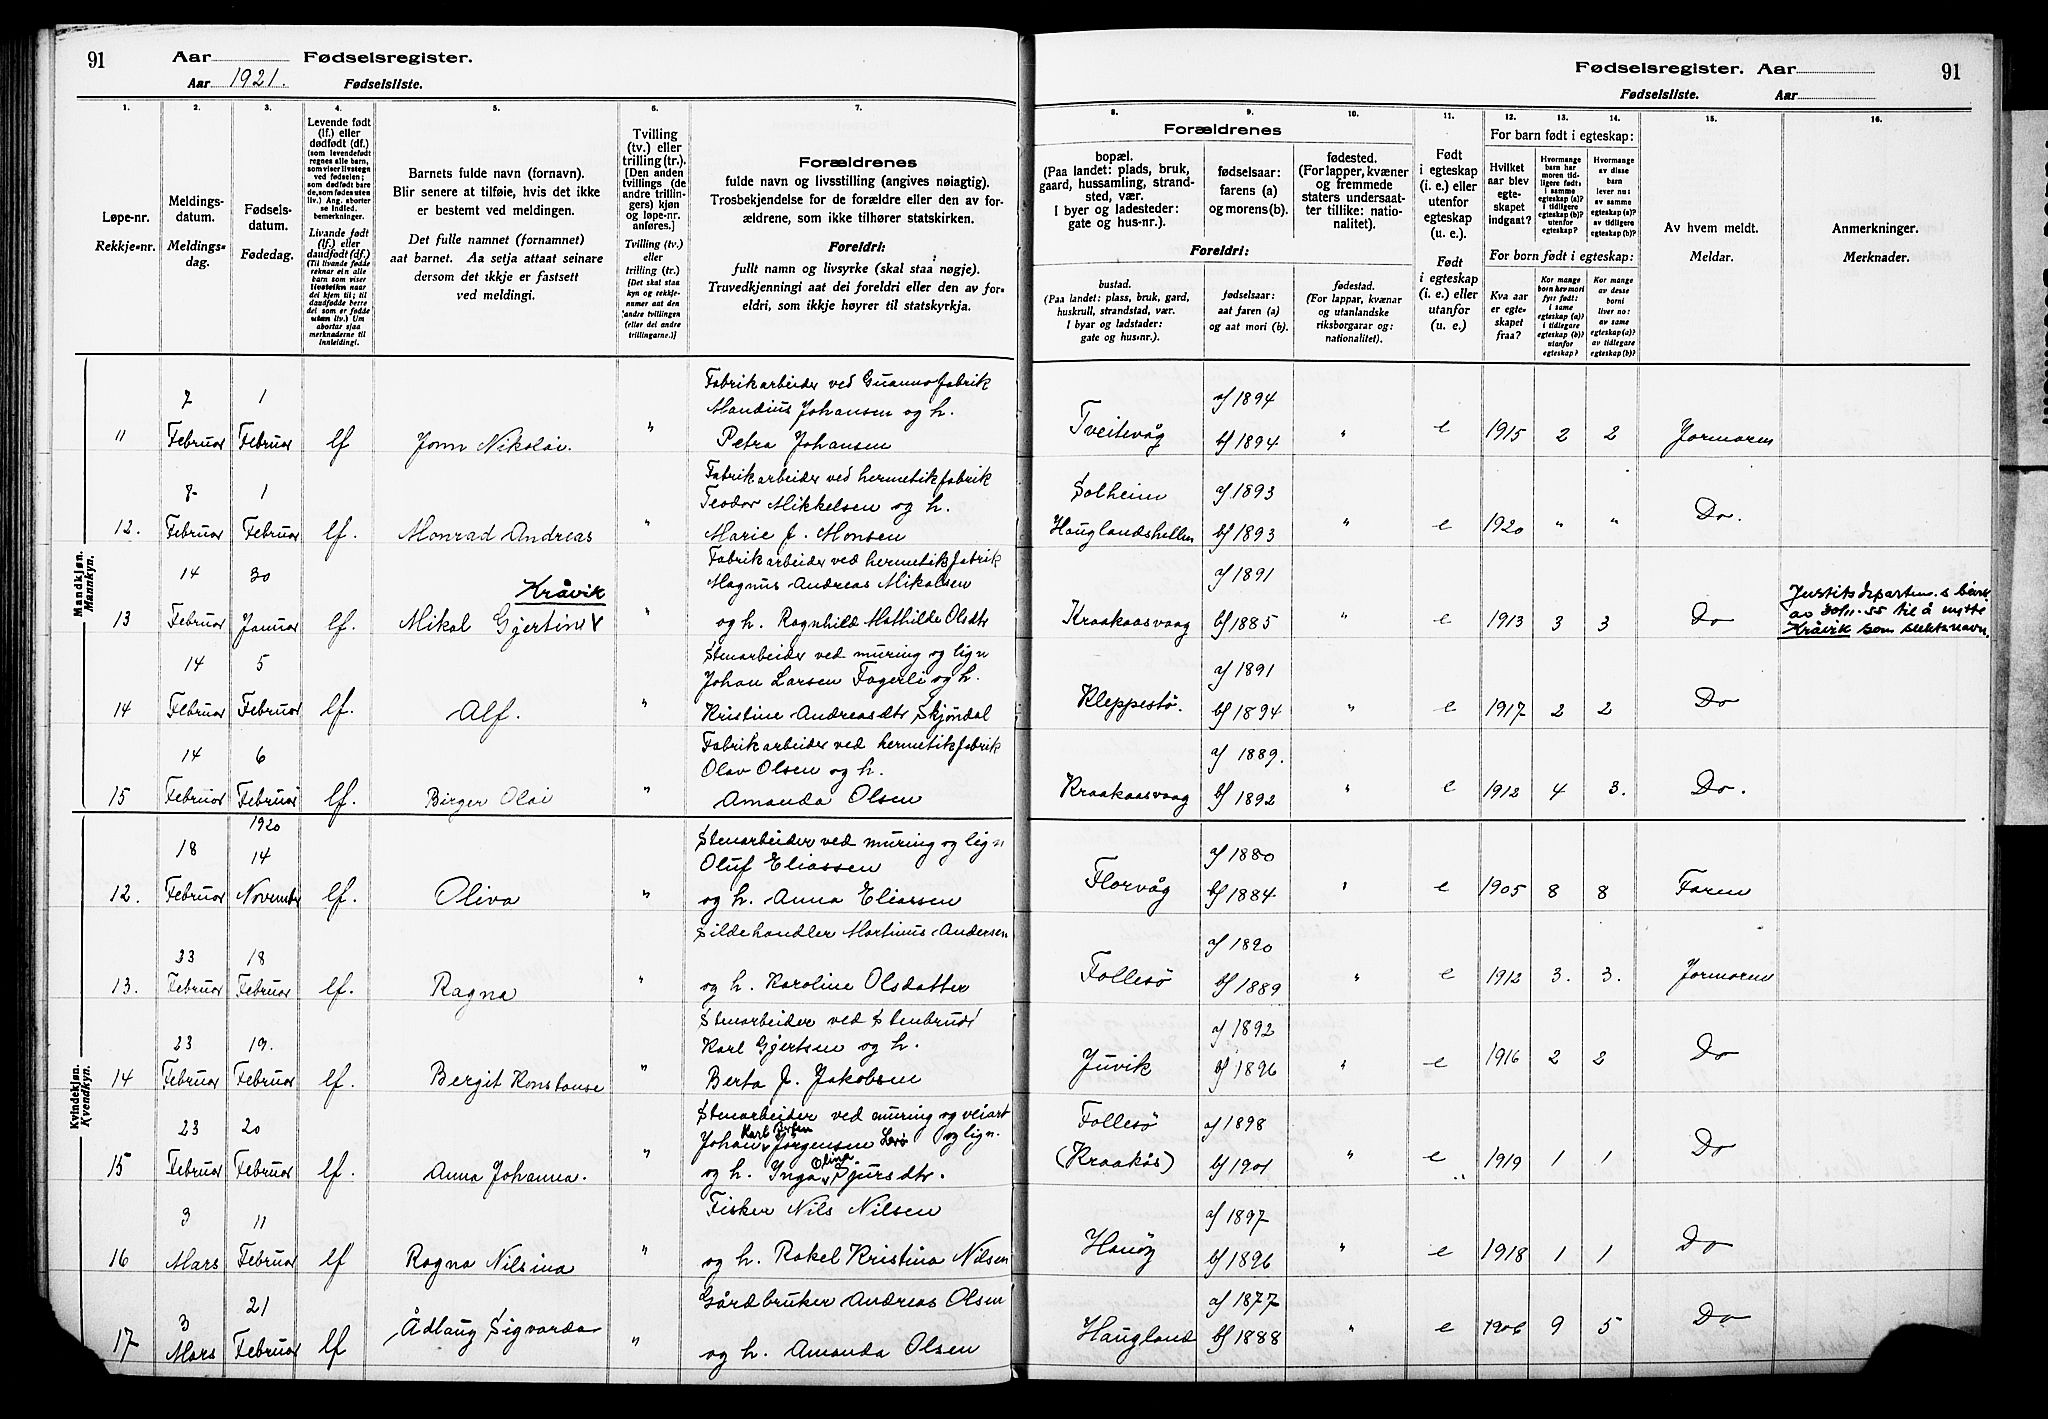 91
Aar
Fødselsregister.
Aar 1921. Fødselsliste.
1. 2. 3. 4. 5. 6. 7.
Løpe-nr.
Rekkje-nr.
Meldings-
datum.
Meldings-
dag.
Fødsels-
datum.
Fødedag.
Levende født
(lf.) eller
dødfødt (df.)
(som levendefødt
regnes alle barn,
som viser livstegn
ved fødselen;
som dødfødt bare
de, som fødes uten
liv.) Ang. aborter
se indled.
bemerkninger.
Livande født
(lf.) eller
daudfødt (df.)
(Til livande fødde
reknar ein alle
barn som viser
livsteikn naar
dei kjem til; til
daudfødde berre
dei som er fødde
utan liv.) Um
abortar sjaa
merknaderne til
innleidingi.
Barnets fulde navn (fornavn).
Blir senere at tilføie, hvis det ikke
er bestemt ved meldingen.
Det fulle namnet (fornamnet)
aat barnet. Aa setja attaat seinare
dersom det ikkje er fastsett
ved meldingi.
Tvilling
(tv.) eller
trilling (tr.).
[Den anden
tvillings (de
andre trillin-
gers) kjøn
og løpe-nr.
anføres.]
Tvilling (tv.)
eller
trilling (tr.)
[Det skal staa
kyn og rekkje-
numer aat den
andre tvillingen
(eller dei andre
trillingarne.)]
Forældrenes
fulde navn og livsstilling (angives nøiagtig).
Trosbekjendelse for de forældre eller den av for-
ældrene, som ikke tilhører statskirken.
Foreldri:
fullt namn og livsyrke (skal staa nøgje).
Truvedkjenningi aat dei foreldri eller den av for-
eldri, som ikkje høyrer til statskyrkja.
Mandkjøn.
Mannkyn.
11
7
Februar
1
Februar
lf
Jonn Nikolai.
"
Fabrikarbeider ved Guannofabrik
Mandius Johansen og h.
Petra Johansen
12.
7
Februar
1
Februar
lf.
Monrad Andreas
"
Fabrikarbeider ved hermetikfabrik
Teodor Mikkelsen og h.
Marie J. Monsen
13
14
Februar
30
Januar
lf.
Kråvik
Mikal Gjertin
"
Fabrikarbeider ved hermetikfabrik
Magnus Andreas Mikalsen
og h. Ragnhild Mathilde Olsdtr
14
14
Februar
5
Februar
lf.
Alf.
"
Stenarbeider ved muring og lign
Johan Larsen Fagerli og h.
Kristine Andreasdtr Skjøndal
15
14
Februar
6
Februar
lf.
Birger Olai
"
Fabrikarbeider ved hermetikfabrik
Olav Olsen og h.
Amanda Olsen
Kvindekjøn.
Kvendkyn.
12.
18
Februar
1920
14
November
lf.
Oliva
"
Stenarbeider ved muring og lign
Oluf Eliassen
og h. Anna Eliassen
13.
23
Februar
18
Februar
lf.
Ragna
"
Sildehandler Martinus Andersen
og h. Karoline Olsdatter
14
23
Februar
19.
Februar
lf.
Bergit Konstanse
"
Stenarbeider ved Stenbrud
Karl Gjertsen og h.
Berta J. Jakobsen
15
23
Februar
20
Februar
lf.
Anna Johanna.
"
Stenarbeider ved muring og veiarb
Johan Karl Jørgensen og lign.
og h. Inga Olina Sjursdtr.
16
3
Mars
11
Februar
lf
Ragna Nilsina
"
Fisker Nils Nilsen
og h. Rakel Kristina Nilsen
17
3
Mars
21
Februar
lf
Ådlaug Sigvarda
"
Gårdbruker Andreas Olsen
og h. Amanda Olsen
Fødselsregister. Aar
91
Fødselsliste. Aar
8. 9. 10. 11. 12. 13. 14. 15. 16.
Forældrenes
bopæl.
(Paa landet: plads, bruk,
gaard, hussamling, strand-
sted, vær.
I byer og ladesteder:
gate og hus-nr.).
fødselsaar:
farens (a)
og morens (b).
fødested.
(For lapper, kvæner
og fremmede
staters undersaat-
ter tillike: natio-
nalitet).
Foreldri:
bustad.
(Paa landet: plass, bruk, gard,
huskrull, strandstad, vær.
I byar og ladstader:
gate og hus-nr.).
fødselsaar:
aat faren (a)
og aat mori (b).
fødestad.
(For lappar, kvænar
og utanlandske
riksborgarar og:
nationalitet).
Født
i egteskap
(i. e.) eller
utenfor
egteskap
(u. e.).
Født
i egteskap
(i. e.) eller
utanfor
(u. e.)
For barn født i egteskap:
Hvilket
aar blev
egte-
skapet
indgaat?
Hvormange
barn har
moren tid-
ligere født:
i samme
egteskap (a)?
i tidligere
egteskap (b)?
utenfor
egteskap?
Hvormange
av disse
barn
lever nu:
av samme
egteskap (a)?
av tidligere
egteskap (b)?
For born født i egteskap:
Kva aar
er egte-
skapet
fraa?
Kor mange
born hev mori
fyrr født:
i same
egteskap (a)?
i tidlegare
egteskap (b)?
utanfor
egteskap?
Kor mange
av desse
borni
liver no:
av same
egteskap (a)?
av tidlegare
egteskap (b)?
Av hvem meldt.
Meldar.
Anmerkninger.
Merknader.
Tveitevåg
a/ 1894
b/ 1894
"
e
1915
2
2
Jormoren
Solheim
Hauglandshellen
a/ 1893
b/ 1893
"
e
1920
"
"
Do.
Kraakaasvaag
a/ 1891
b/ 1885
"
e
1913
3
3
Do
Justitsdepartem.s bev.
av 30/11-55 til å nytte
Kråvik som slektsnavn.
Kleppestø.
a/ 1891
b/ 1894
"
e
1917
2
2
Do
Kraakaasvaag
a/ 1889.
b/ 1892
"
e
1912
4
3.
Do.
Florvåg
a/ 1880
b/ 1884
"
e
1905
8
8
Faren
Follesø
a/ 1890
b/ 1889
"
e
1912
3.
3.
Jormoren
Juvik
a/ 1892
b/ 1896
"
e
1916
2
2
Do
Follesø
(Kraakås)
a/ 1898
b/ 1901
"
e
1919
1
1
Do
Hanøy
a/ 1897
b/ 1896
"
e
1918
1
1
Do
Haugland
a/ 1877
b/ 1888
"
e
1906
9
5
Do